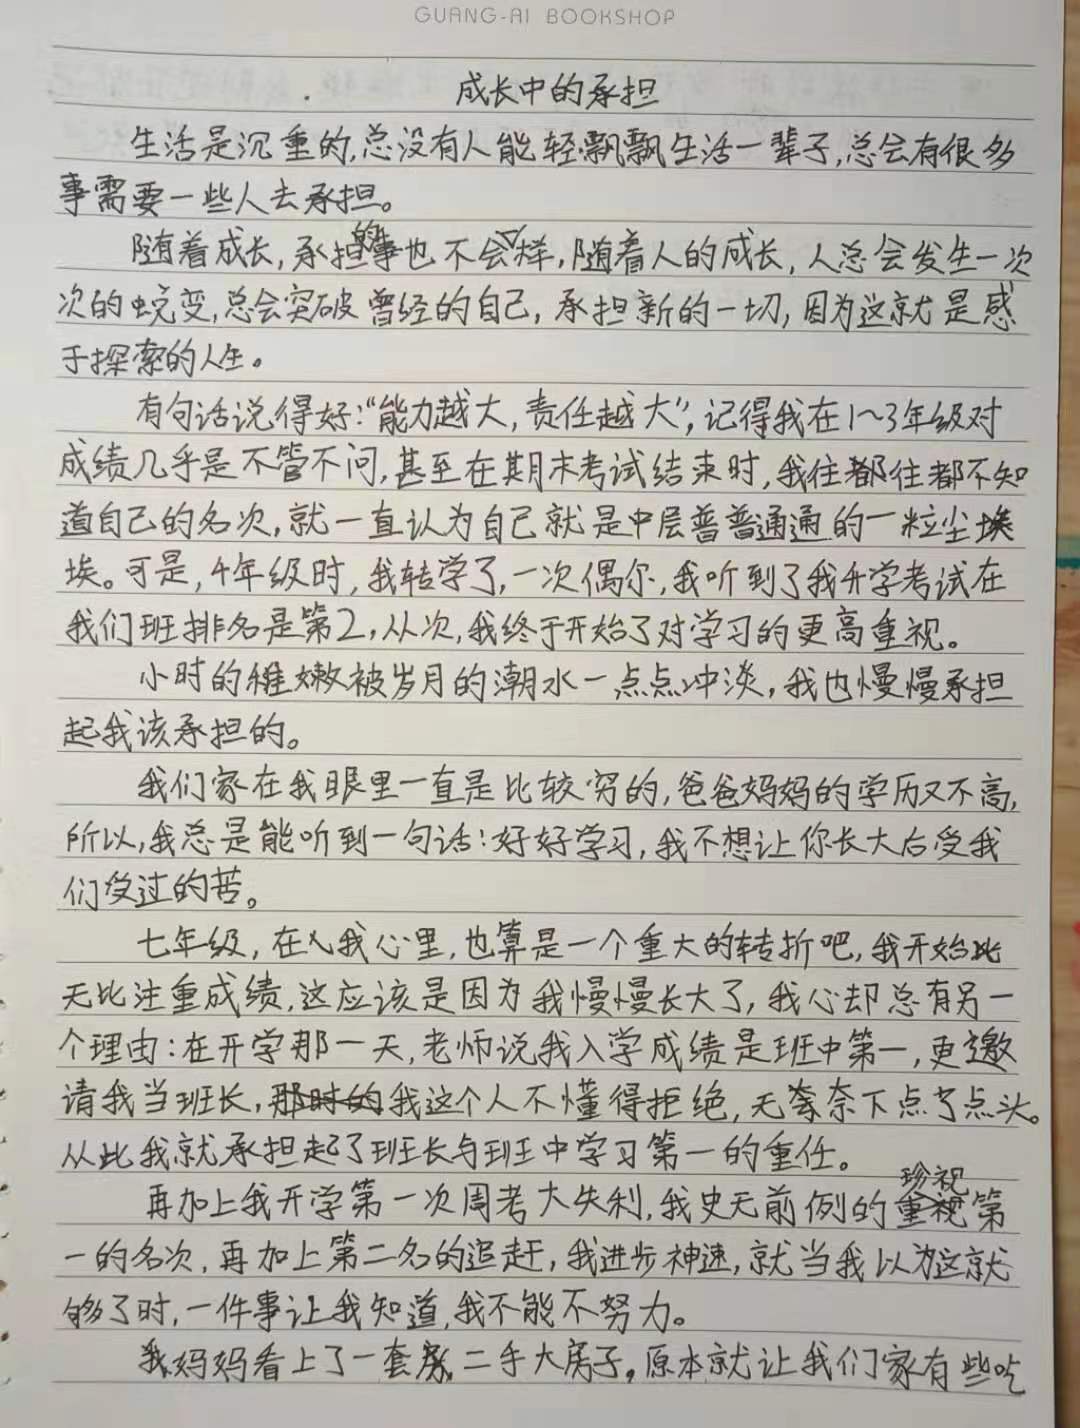 GUANG-AI BOOKSHOP
成长中的承担
生活是沉重的,总没有人能轻飘飘生活一辈子,总会有很多
事需要一些人去承担。
随着成长,承担的事也不会一样,随着人的成长,人总会发生一次
次的蜕变,总会突破曾经的自己,承担新的一切,因为这就是感
于探索的人生。
有句话说得好:“能力越大,责任越大”,记得我在1~3年级对
成绩几乎是不管不问,甚至在期末考试结束时,我往都往都不知
道自己的名次,就一直认为自己就是中层普普通通的一粒尘埃
埃。可是,4年级时,我转学了,一次偶尔,我听到了我开学考试在
我们班排名是第2,从次,我终于开始了对学习的更高重视。
小时的稚嫩被岁月的潮水一点点冲淡,我也慢慢承担
起我该承担的。
我们家在我眼里一直是比较穷的,爸爸妈妈的学历又不高,
所以,我总是能听到一句话:好好学习,我不想让你长大后受我
们受过的苦。
七年级,在我心里,也算是一个重大的转折吧,我开始
无比注重成绩,这应该是因为我慢慢长大了,我心却总有另一
个理由:在开学那一天,老师说我入学成绩是班中第一,更邀
请我当班长,我这个人不懂得拒绝,无奈下点了点头。
从此我就承担起了班长与班中学习第一的重任。
再加上我开学第一次周考大失利,我史无前例的珍视第
一的名次,再加上第二名的追赶,我进步神速,就当我以为这就
够了时,一件事让我知道,我不能不努力。
我妈妈看上了一套二手大房子,原本就让我们家有些吃